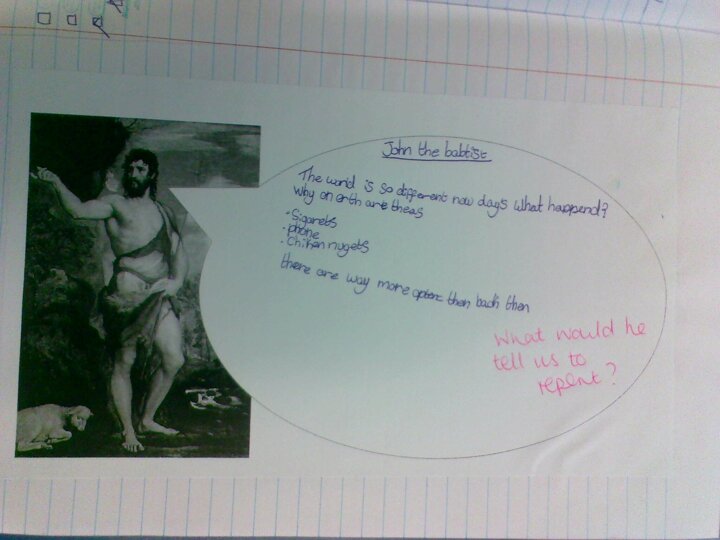 John the babtist
The world is so different now days what happend?
Why on erth are theas
- Sigarets
- phone
- Chikan nugets
there are way more than back then
What would he
tell us to
repent?